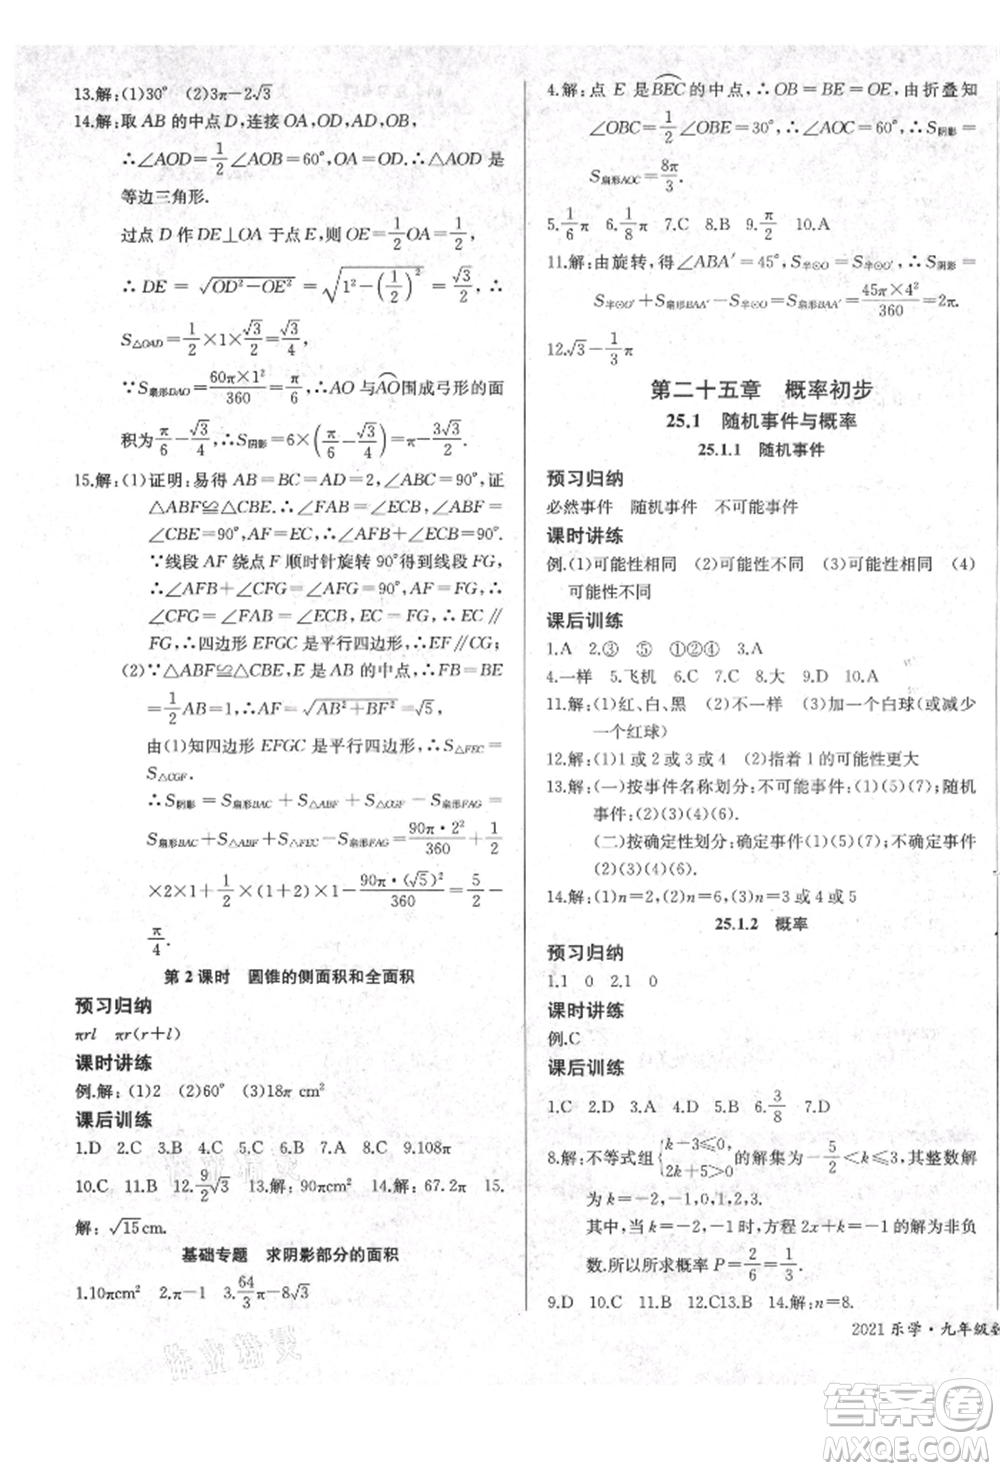 13.解:(1)30° (2)3π-2√3
14.解:取 AB 的中点 D,连接 OA,OD,AD,OB,
∴∠AOD=1/2∠AOB=60°,∴△AOD 是
等边三角形.
过点 D 作 DE⊥OA 于点 E,则 OE=1/2OA=1/2,
∴DE=√(OD²-OE²)=√(1²-(1/2)²)=√3/2,∴
S△OAD=1/2×1×√3/2=√3/4.
∵S扇形DAO=60π×1²/360=π/6,∴AO 与⌒AO围成弓形的面
积为π/6-√3/4,∴S阴影=6×(π/6-√3/4)=π-3√3/2.
15.解:(1)证明:易得 AB=BC=AD=2,∠ABC=90°,证
△ABF≌△CBE.∴∠FAB=∠ECB,∠ABF=
∠CBE=90°,AF=EC,∴∠AFB+∠FAB=90°.
∵线段 AF 绕点 F 顺时针旋转 90°得到线段 FG,
∴∠AFB+∠CFG=∠AFG=90°,
∴∠CFG=∠FAB=∠ECB,EC=FG,∴EC∥
FG,∴四边形 EFGC 是平行四边形,∴EF∥CG;
(2)∵△ABF≌△CBE,E 是 AB 的中点,∴FB=BE=
1/2AB=1,∴AF=√(AB²+BF²)=√5,
由(1)知四边形 EFGC 是平行四边形,∴S△FEC=
S△CGF.
∴S阴影=S扇形BAC+S△ABF+S△CGF-S扇形FAG=
S扇形BAC+S△ABF+S△FEC-S扇形FAG=90π·2²/360+1/2
×2×1+1/2×2×1-90π·(√5)²/360=5/2-
π/4.
第 2 课时 圆锥的侧面积和全面积
预习归纳
πrl πr(r+l)
课时讲练
例.解:(1)2 (2)60° (3)18π cm²
课后训练
1.D 2.C 3.B 4.B 5.B 6.B 7.A 8.C 9.108π
10.C 11.B 12.9/2√3 13.解:90π cm² 14.解:67.2π 15.
解:√15 cm.
基础专题 求阴影部分的面积
1.10πcm² 2.π-1 3.64/3π-8√3
4.解:点 E 是⌒BEC的中点,∴OB=BE=OE,由折叠知
∠OBC=1/2∠OBE=30°,∴∠AOC=60°,∴S阴影=
S扇形AOC=8π/3.
5.1/6π 6.1/8π 7.C 8.B 9.π/2 10.A
11.解:由旋转,得∠ABA′=45°,S半⊙O′=S半⊙O,∴S阴影=
S半⊙O′+S扇形BAA′-S半⊙O=S扇形BAA′=45π×4²/360=2π.
12.√3-1/3π
第二十五章 概率初步
25.1 随机事件与概率
25.1.1 随机事件
预习归纳
必然事件 随机事件 不可能事件
课时讲练
例.(1)可能性相同 (2)可能性不同 (3)可能性相同 (4)
可能性不同
课后训练
1.A 2.③ ⑤ ①②④ 3.A
4.一样 5.飞机 6.C 7.C 8.大 9.D 10.A
11.解:(1)红、白、黑 (2)不一样 (3)加一个白球(或减少
一个红球)
12.解:(1)1 或 2 或 3 或 4 (2)指着 1 的可能性更大
13.解:(一)按事件名称划分:不可能事件:(1)(5)(7);随机
事件:(2)(3)(4)(6)(8).
(二)按确定性划分:确定事件(1)(5)(7);不确定事件
(2)(3)(4)(6)(8).
14.解:(1)n=2,(2)n=6,(3)n=3 或 4 或 5
25.1.2 概率
预习归纳
1.1 0 2.1 0
课时讲练
例.C
课后训练
1.C 2.D 3.A 4.D 5.B 6.3/8 7.D
8.解:不等式组{k-3≤0, 2k+5>0 的解集为-5/2<k≤3,其整数解
为 k=-2,-1,0,1,2,3.
其中,当 k=-2,-1 时,方程 2x+k=-1 的解为非负
数.所以所求概率 P=2/6=1/3.
9.D 10.C 11.B 12.B 13.B 14.解:n=8.
2021 乐学·九年级
答案圈
MXQE.COM